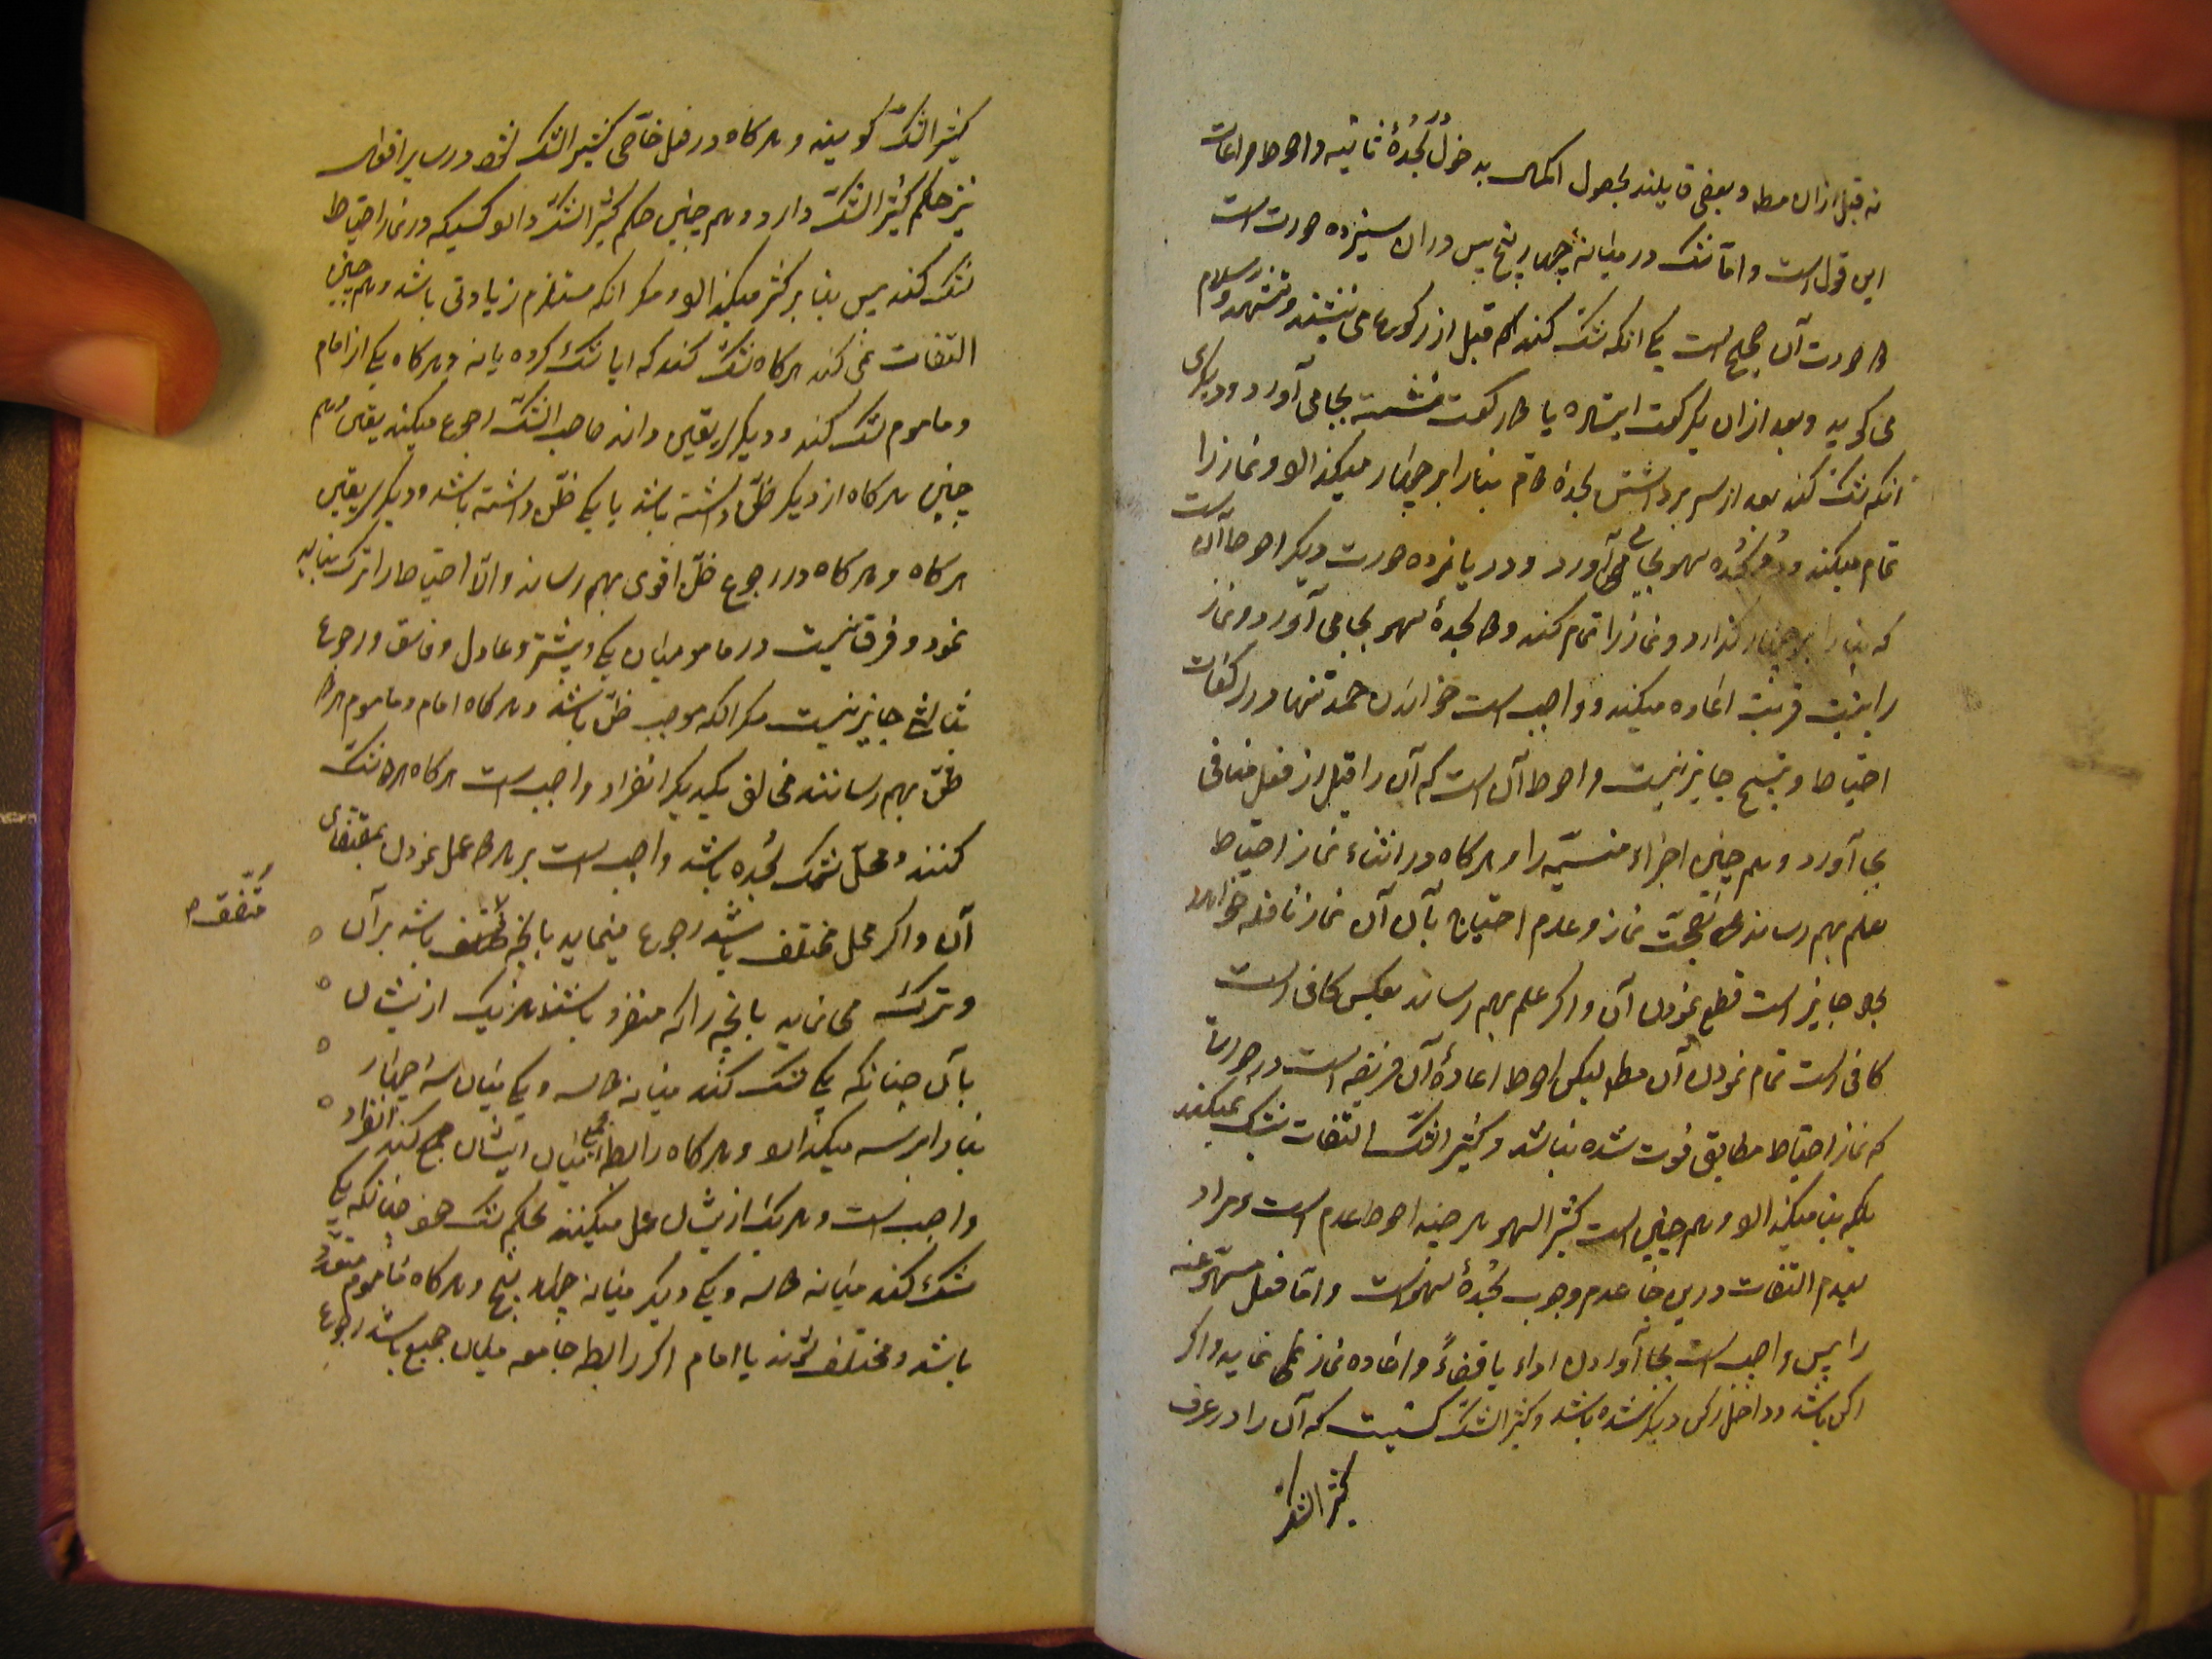 نه قبل از ان مطه و بعضی قایلند بحصول اکمال بدخول سجدهٔ ثانیه و احوط مراعات
این قول است و اما شک در میانهٔ چهار پنج پس در ان سیزده صورت است
دو صورت آن صحیح است یکی انکه شک کند که قبل از رکوع می نشیند و تشهد و سلام
می کوید و بعد از ان یکرکعت ایستاده یا دو رکعت نشسته بجا می آورد و دیکری
انکه شک کند بعد از سر برداشتن سجدهٔ دوم بنا را بر چهار میکذارد و نماز را
تمام میکند و دو سجده سهو بجا می آورد و در یازده صورت دیکر احوط آن است
که بنا را بر چهار کذارد و نماز را تمام کند و دو سجدهٔ سهو بجا می آورد و نماز
را بنیت قربت اعاده میکند و واجب است خواندن حمد تنها در رکعات
احتیاط و تسبیح جایز نیست و احوط آن است که آن را قبل از فعل منافی
بجا آورد و هم چنین اجزاء منسیّه را و هرکاه در اثناء نماز احتیاط
علم بهم رساند صحّت نماز و عدم احتیاج بآن آن نماز نافله خواهد
بود جایز است قطع نمودن آن و اکر علم بهم رساند بعکس کافی است
کافی است تمام نمودن آن مطه لیکن احوط اعادهٔ آن فریضه است در صورت
که نماز احتیاط مطابق فوت شده نباشد و کثیر الشکّ التفات بشک نمیکند
بلکه بنا میکذارد و هم چنین است کثیر السهو هر چند احوط عدم است و مراد
بعدم التفات درین جا عدم وجوب سجدهٔ سهو است و اما فعل مسهوّ عنه
را پس واجب است بجا آوردن اداء یا قضاءً و اعاده نماز نمی نماید و اکر
رکن باشد و داخل رکن دیکر شده باشد و کثیر الشکّ کسیست که آن را در عرف
کثیر الشکّ
کثیر الشکّ کویند و هرکاه در فعل خاصّی کثیر الشک شود در سایر افعال
نیز حکم کثیر الشکّ دارد و هم چنین حکم کثیر الشکّ دارد کسیکه در نماز احتیاط
شک کند پس بنا بر اکثر میکذارد مکر انکه مستلزم زیادتی باشد و هم چنین
التفات نمی کند هرکاه شکّ کند که ایا شک کرده یا نه و هرکاه یکی از امام
و ماموم شک کند و دیکر یقین داند صاحب الشکّ رجوع میکند بیقین و هم
چنین هرکاه از دیکر ظنّ داشته باشد یا یکی ظنّ داشته باشد و دیکر یقین
هرکاه و هرکاه در رجوع ظنّ اقوی بهم رساند و الّا احتیاط را ترک نباید
نمود و فرق نیست در ماموم میان یکی و بیشتر و عادل و فاسق و رجوع
بثالث جایز نیست مکر انکه موجب ظنّ باشد و هرکاه امام و ماموم هر دو
ظنّ بهم رسانند مخالف یکدیکر انفراد واجب است هرکاه هر دو شک
کنند و محلّ شک سجده باشد واجب است بر هر دو عمل نمودن بمقتضای
آن و اکر محل مختلف باشد رجوع مینماید بانچه متفق باشد بر آن
متّفق
و ترک می نماید بانچه را که منفرد باشند هر یک از یشان
بآن چنانکه یکی شک کند میانه دو سه و یکی میان سه و چهار
بنا را بر سه میکذارد و هرکاه رابطه میان ایشان جمع کند انفراد
واجب است و هر یک از یشان عمل میکنند بحکم شک خود چنانکه یکی
شک کند میانه دو سه و یکی دیکر میانه چهار پنج و هرکاه ماموم متعدّد
باشد و مختلف شوند با امام اکر رابطه جامعه میان جمیع باشد رجوع